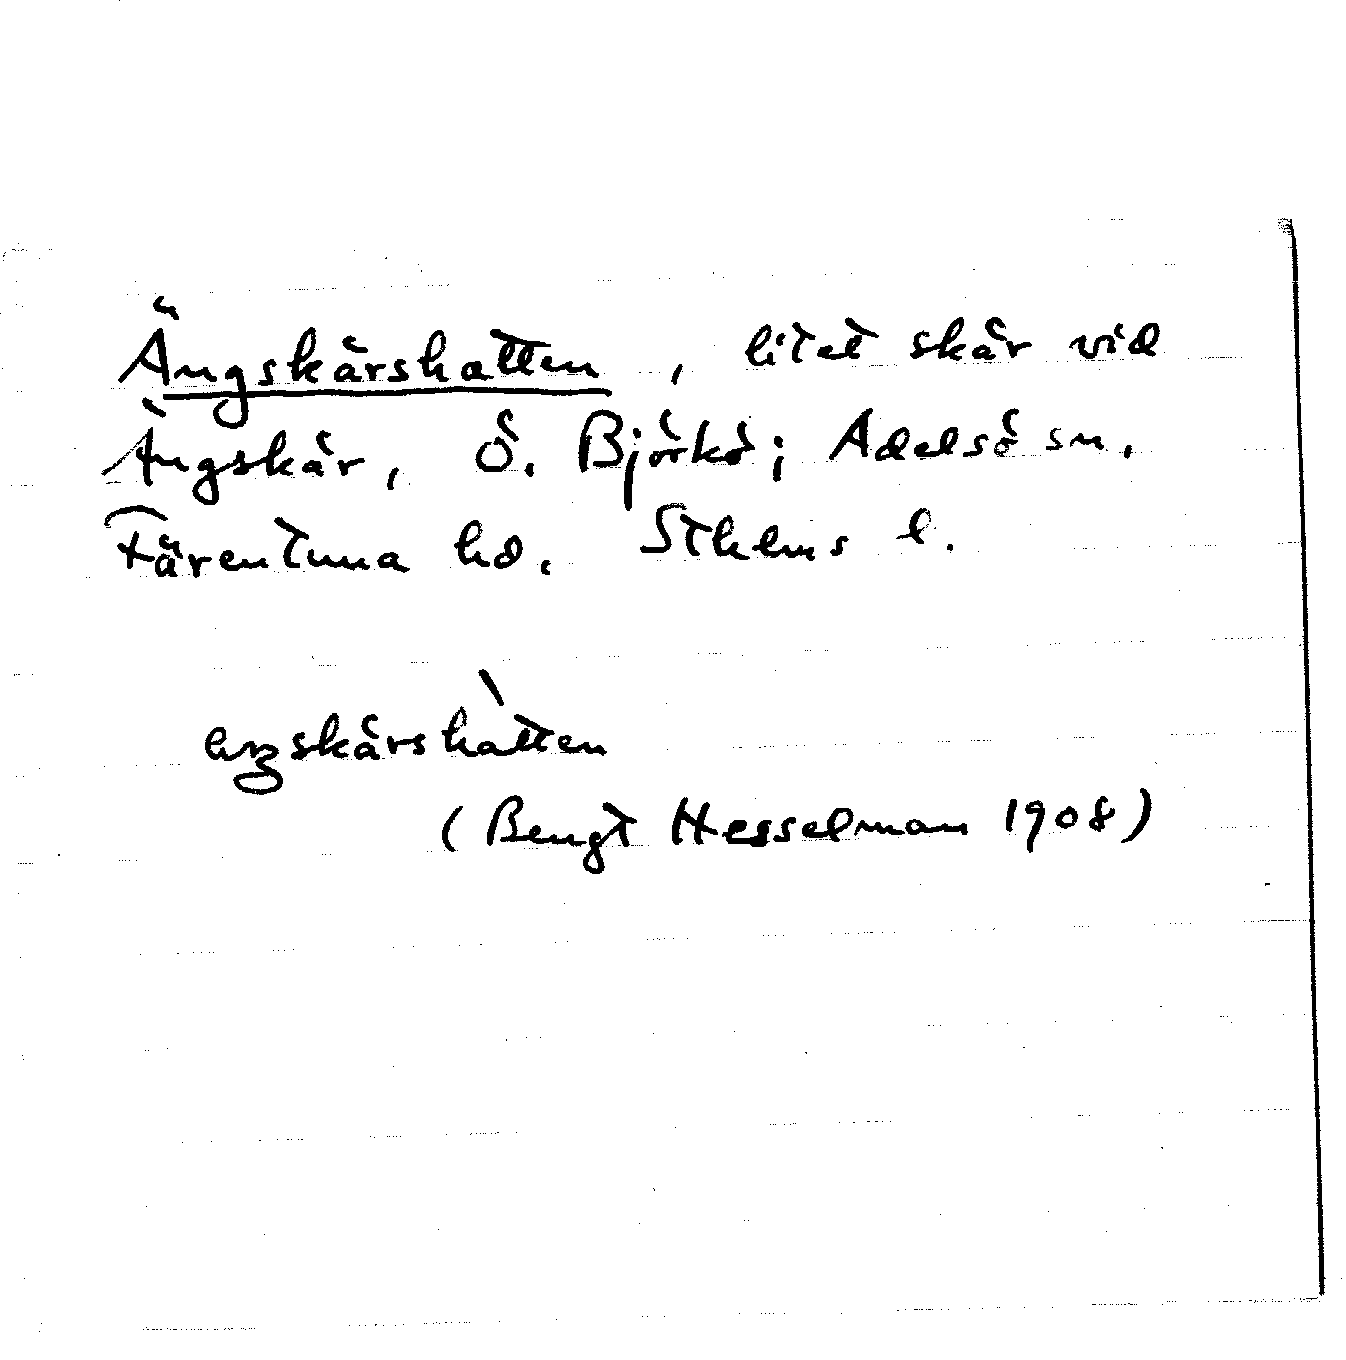 Ängskärshatten, litet skär vid
Ängskär, Ö. Björkö; Adelsö sn.
Färentuna hd. Sthlms l.
eŋskärshàtten
(Bengt Hesselman 1908)